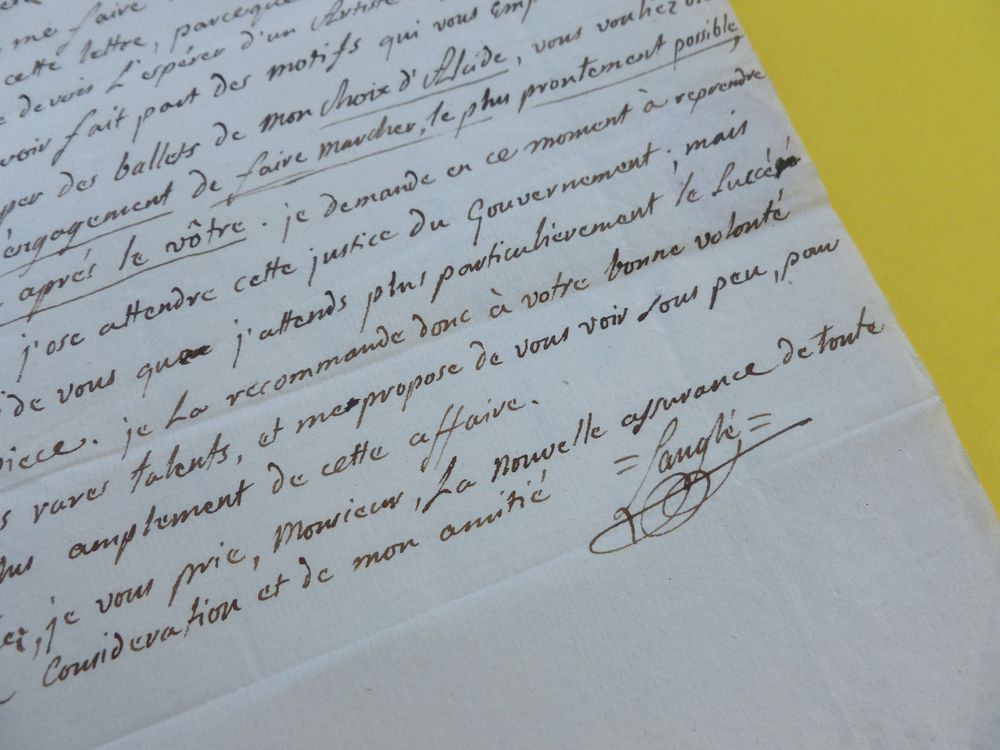 me faire
cette lettre, parceque
devois l'espérer d'un Artiste
voir fait part des motifs qui vous emp
per des ballets de mon choix d'Alcide, vous vouliez
engagement de faire marcher, le plus prontement possible,
aprés le vôtre. je demande en ce moment à reprendre
j'ose attendre cette justice du Gouvernement; mais
de vous que j'attends plus particulièrement le Succés
piece. je La recommande donc à votre bonne volonté
rares talents, et me propose de vous voir sous peu, pour
plus amplement de cette affaire.
je vous prie, Monsieur, La Nouvelle assurance de toute
Consideration et de mon amitié
= Langlé, =